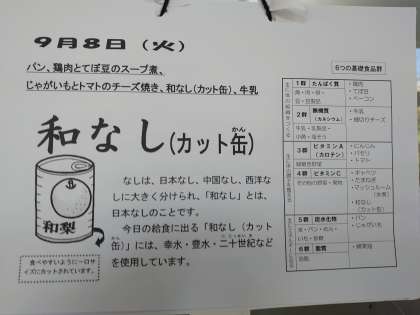 9月8日（火）
パン、鶏肉とてぼ豆のスープ煮、
じゃがいもとトマトのチーズ焼き、和なし(カット缶)、牛乳
和なし(カット缶)
かん
和梨
なしは、日本なし、中国なし、西洋な
しに大きく分けられ、「和なし」とは、
日本なしのことです。
今日の給食に出る「和なし（カット
缶）」には、幸水・豊水・二十世紀など
を使用しています。
食べやすいように一口サ
イズにカットされています。
6つの基礎食品群
1群 たんぱく質
・鶏肉
・てぼ豆
・ベーコン
2群 無機質
(カルシウム)
・牛乳
・細切りチーズ
3群 ビタミンA
(カロテン)
・にんじん
・パセリ
・トマト
4群 ビタミンC
・キャベツ
・たまねぎ
・マッシュルーム
(水煮)
・和なし
(カット缶)
5群 炭水化物
・パン
・じゃがいも
6群 脂質